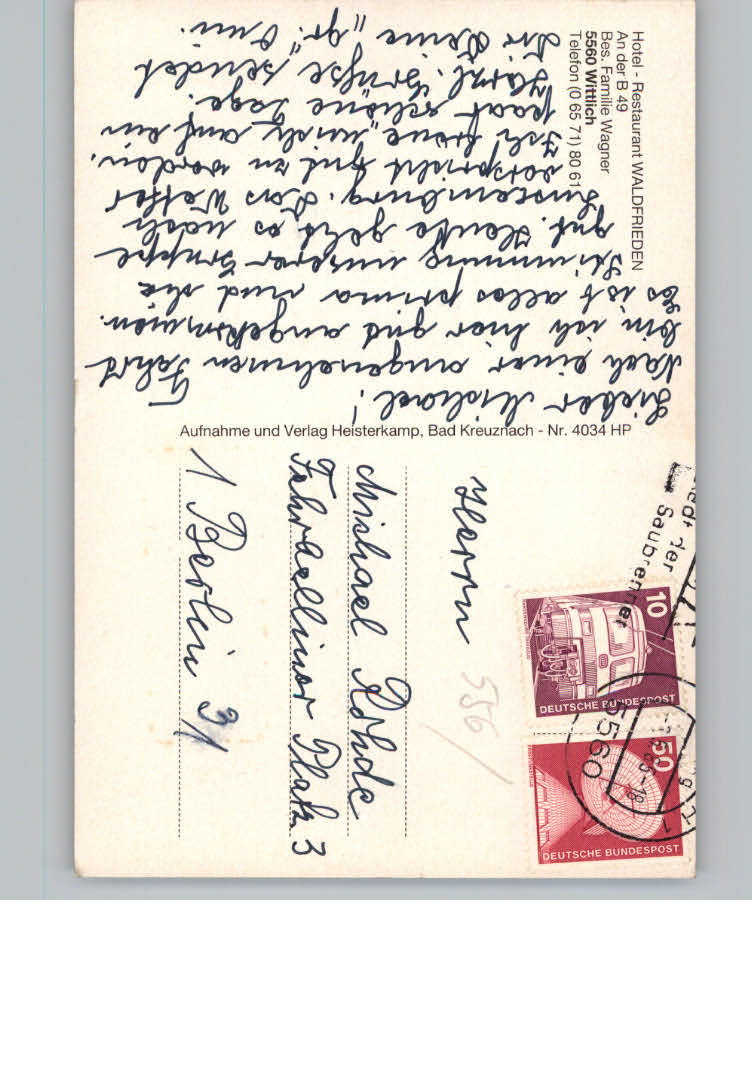 Hotel - Restaurant WALDFRIEDEN
An der B 49
Bes. Familie Wagner
5560 Wittlich
Telefon (0 65 71) 80 61
Lieber Michael!
Nach einer angenehmen Fahrt
bin ich hier gut angekommen.
Es ist alles prima und die
Stimmung unserer Gruppe
gut. Heute geht es nach
Luxemburg. Das Wetter
verspricht gut zu werden.
Ich freue mich auf ein
paar schöne Tage.
Herzl. Grüße sendet
Dir Deine "gr." Omi.
Aufnahme und Verlag Heisterkamp, Bad Kreuznach - Nr. 4034 HP
Herrn
Michael Rohde
Fehrbelliner Platz 3
1 Berlin 31
556/
10
DEUTSCHE BUNDESPOST
50
DEUTSCHE BUNDESPOST
der
Säubrenner
5560